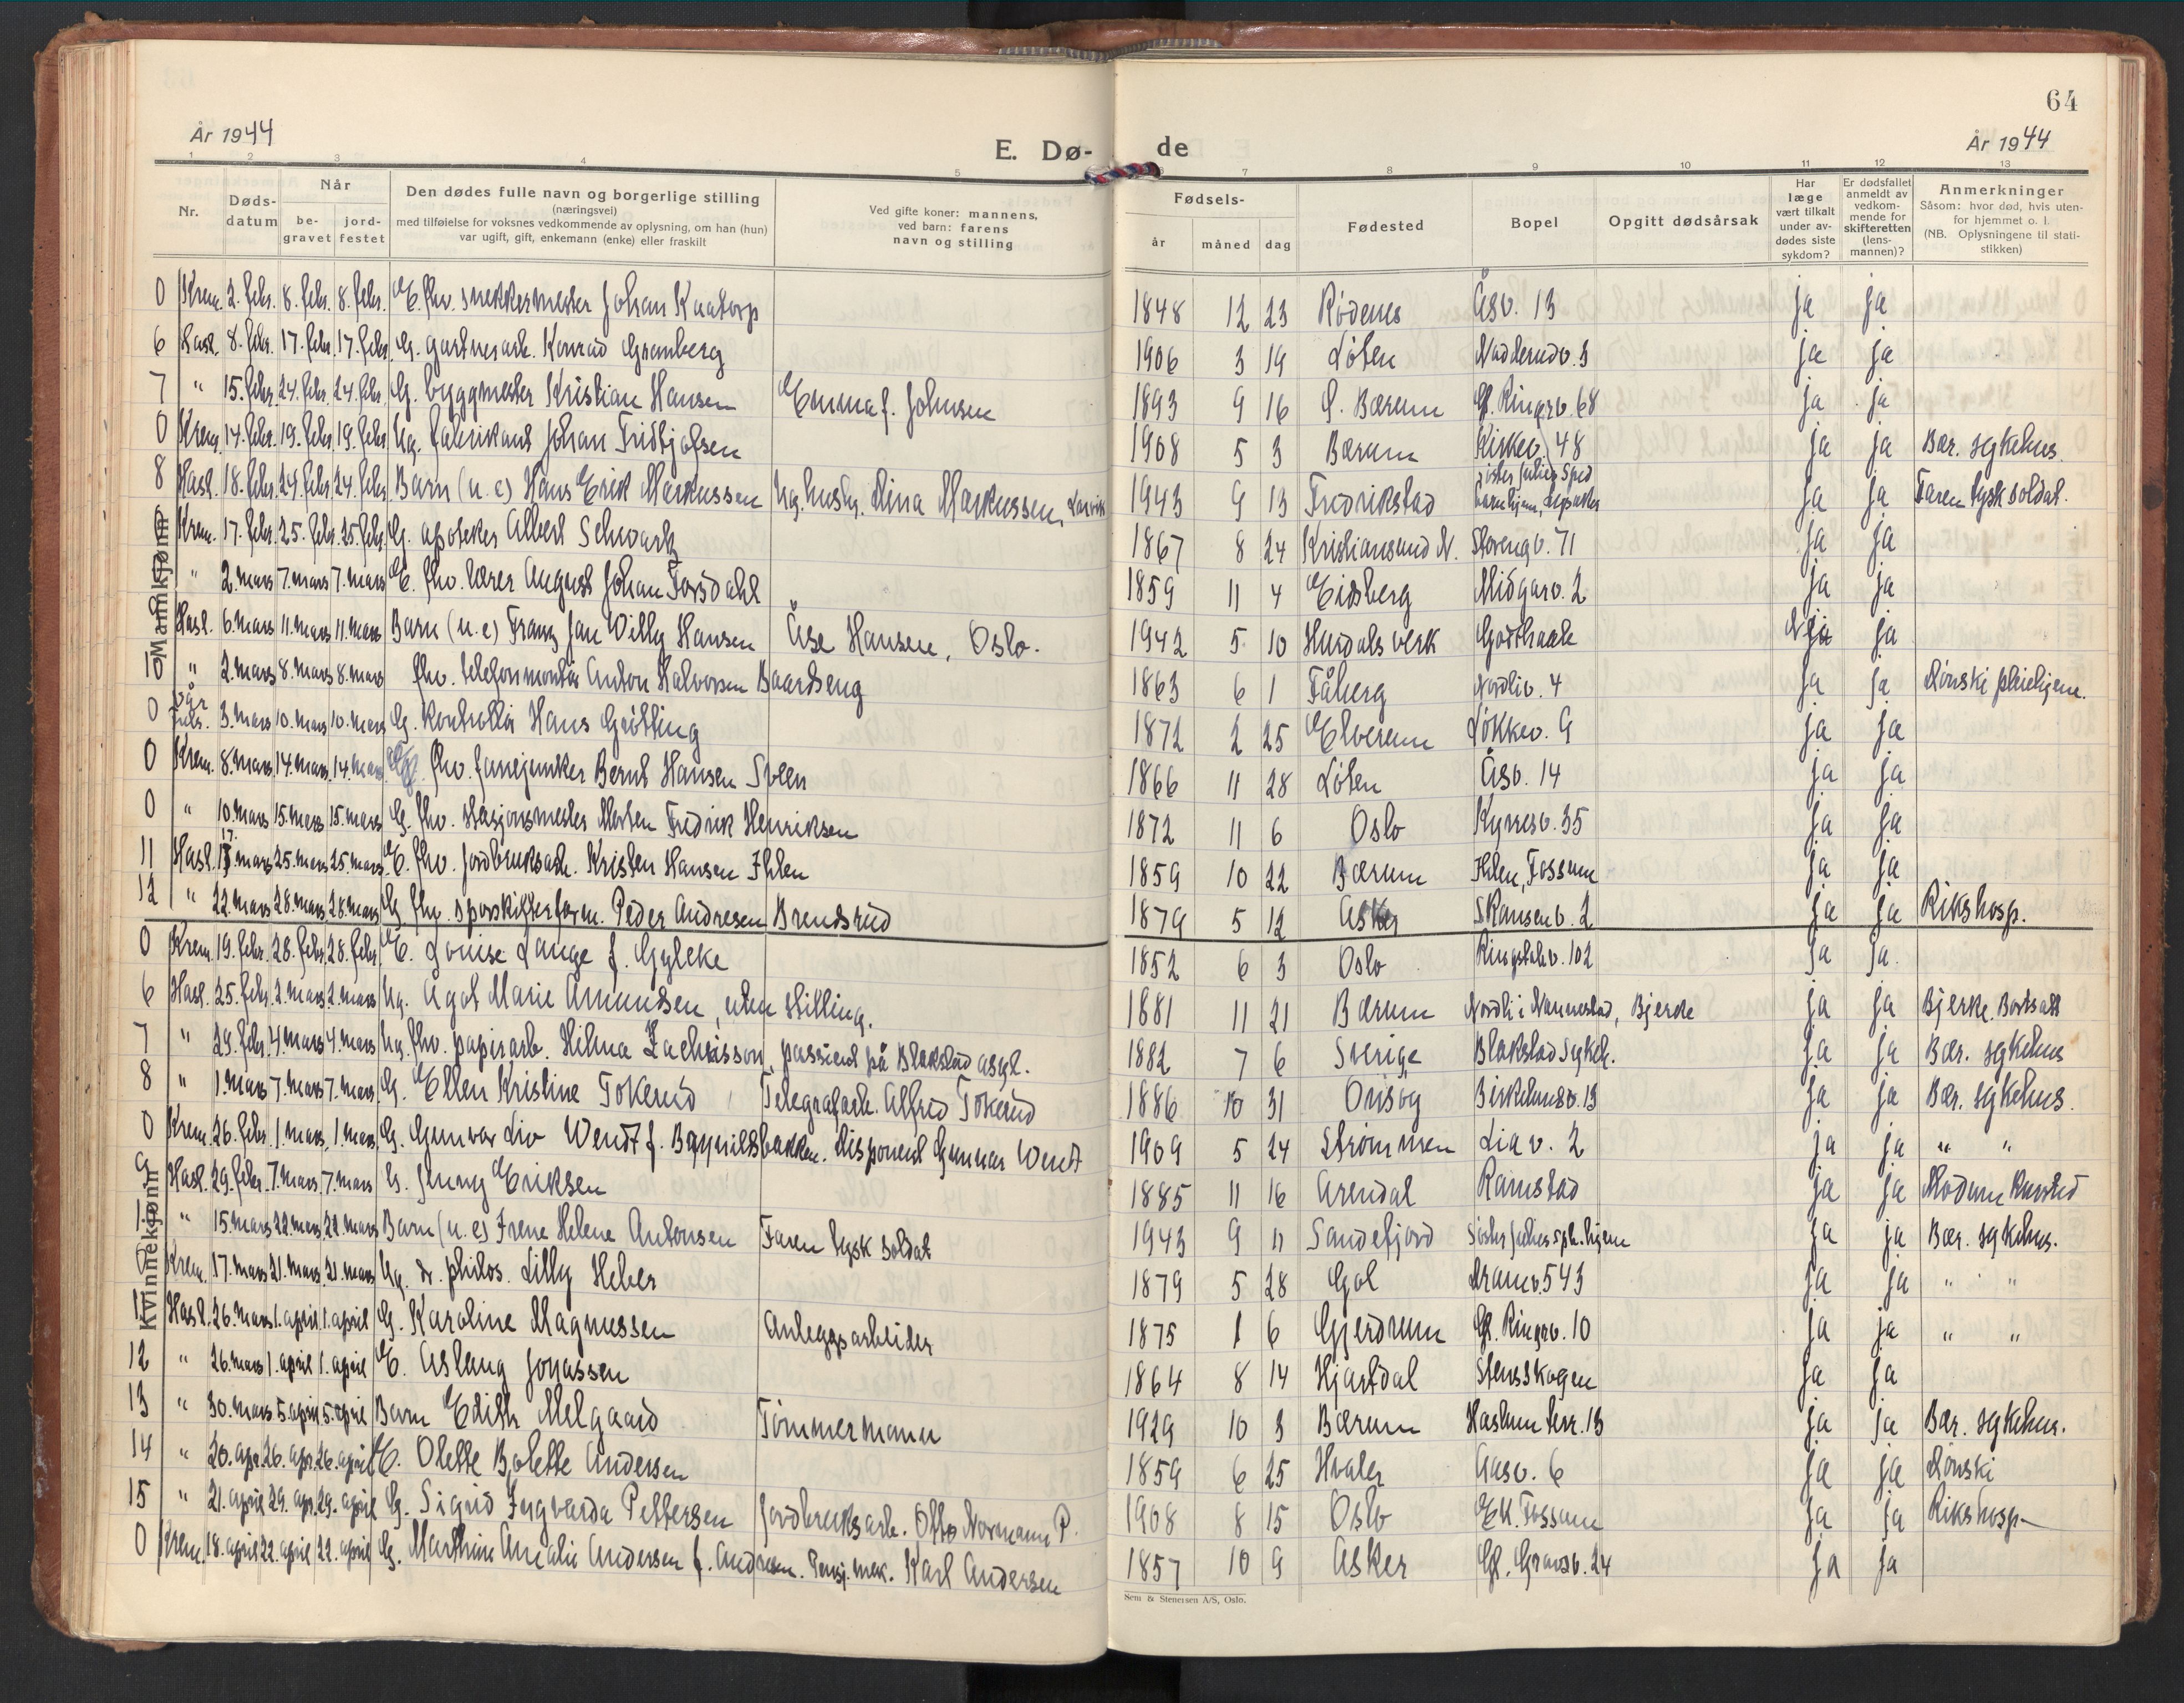 64
År 1944
E. Dø- de
År 1944
1 2 3 4 5 7 8 9 10 11 12 13
Nr.
Døds-
datum
Når
be-
gravet
jord-
festet
Den dødes fulle navn og borgerlige stilling
(næringsvei)
med tilføielse for voksnes vedkommende av oplysning, om han (hun)
var ugift, gift, enkemann (enke) eller fraskilt
Ved gifte koner: mannens,
ved barn: farens
navn og stilling
Fødsels-
år måned dag
Fødested
Bopel
Opgitt dødsårsak
Har
læge
vært tilkalt
under av-
dødes siste
sykdom?
Er dødsfallet
anmeldt av
vedkom-
mende for
skifteretten
(lens-
mannen)?
Anmerkninger
Såsom: hvor død, hvis uten-
for hjemmet o. l.
(NB. Oplysningene til stati-
stikken)
Mannkjønn
0 Krem. 2. febr. 8. febr. 8. febr. E. fhv. snekkermester Johan Kaatorp 1848 12 23 Rødenes Åsv. 13 ja ja
6 Hasl. 8. febr. 17. febr. 17. febr. G. gartnerarb. Konrad Gramberg 1906 3 19 Løten Nadderudv. 3 ja ja
7 " 15. febr. 24. febr. 24. febr. G. byggmester Kristian Hansen Emma f. Johnsen 1893 9 16 Ø. Bærum Gl. Ringv. 68 ja ja
0 Krem. 14. febr. 19. febr. 19. febr. Ug. fabrikant Johan Fridtjofsen 1908 5 3 Bærum Kirkev. 48 ja ja Bær. sykehus.
8 Hasl. 18. febr. 24. febr. 24. febr. Barn (u.e) Hans Erik Markussen Ug. hush. Mina Markussen, Larvik 1943 9 13 Fredrikstad ja ja Faren tysk soldat.
Krem. 17. febr. 25. febr. 25. febr. G. apoteker Albert Schwartz 1867 8 24 Kristiansund N. Storengv. 71 ja ja
" 2. mars 7. mars 7. mars E. fhv. lærer August Johan Torsdahl 1859 11 4 Eidsberg Midgarv. 2 ja ja
Hasl. 6. mars 11. mars 11. mars Barn (u.e) Franz Jan Willy Hansen Åse Hansen, Oslo. 1942 5 10 Hurdals verk Godthaab ja
10 " 2. mars 8. mars 8. mars fhv. telefonmontør Anton Halvorsen Baardseng 1863 6 1 Fåberg Nordliv. 4 ja ja Dønski pleiehjem.
0 3. mars 10. mars 10. mars G. kontrollør Hans Grøtting 1872 2 25 Elverum Løkkev. 9 ja ja
0 Krem. 8. mars 14. mars 14. mars fhv. fanejunker Bernt Hansen Sveen 1866 11 28 Løten Åsv. 14 ja ja
0 " 10. mars 15. mars 15. mars G. fhv. stasjonsmester Morten Fredrik Henriksen 1872 11 6 Oslo Kyrresv. 35 ja ja
11 Hasl. 17. mars 25. mars 25. mars E. fhv. jordbruksarb. Kristen Hansen Ihlen 1859 10 22 Bærum Ihlen, Fossum ja ja
12 " 22. mars 28. mars 28. mars G. fhv. sporskifterform. Peder Andresen Brendsrud 1879 5 12 Asker Skansenv. 2 ja ja Rikshosp.
Kvinnekjønn
0 Krem. 19. febr. 28. febr. 28. febr. E. Louise Lange f. Gyleke 1852 6 3 Oslo Ringstabv. 102 ja ja
6 Hasl. 25. febr. 2. mars 2. mars Ug. Agot Marie Amundsen, uten stilling. 1881 11 21 Bærum Nordli i Nannestad, Bjerke ja ja Bjerke. Bortsatt
7 " 29. febr. 4. mars 4. mars Ug. fhv. papirarb. Hilma Zachrisson, pasient på Blakstad asyl. 1882 7 6 Sverige Blakstad Sykeh. ja ja Bær. sykehus
8 " 1. mars 7. mars 7. mars G. Ellen Kristine Tokerud Telegrafarb. Alfred Tokerud 1886 10 31 Onsøy Birkelundv. 13 ja ja Bær. sykehus.
0 Krem. 26. febr. 1. mars 1. mars G. Gunvor Liv Wendt f. Bøynildsbakken. disponent Gunnar Wendt 1909 5 24 Strømmen Liav. 2 ja ja " "
9 Hasl. 29. febr. 7. mars 7. mars G. Jenny Eriksen 1885 11 16 Arendal Ramstad ja ja Modum kursted
" 15. mars 22. mars 22. mars Barn (u.e) Irene Helene Antonsen Faren tysk soldat 1943 9 11 Sandefjord ja ja Bær. sykehus.
0 Krem. 17. mars 21. mars 21. mars Ug. dr. philos. Lilly Heber 1879 5 28 Gol Dramv. 543 ja ja " "
11 Hasl. 26. mars 1. april 1. april G. Karoline Magnussen Anleggsarbeider 1875 1 6 Gjerdrum Gl. Ringv. 10 ja ja " "
12 " 26. mars 1. april 1. april E. Aslaug Jonassen 1864 8 14 Hjartdal Stensskogen ja ja
13 " 30. mars 5. april 5. april Barn Edith Melgaard Tømmermann 1929 10 3 Bærum Haslum terr. 13 ja ja Bær. sykehus.
14 " 20. apr. 26. apr. 26. april E. Olette Bolette Andersen 1859 6 25 Hvaler Aasv. 6 ja ja Dønski
15 " 21. april 29. apr. 29. april G. Sigrid Ingvarda Pettersen Jordbruksarb. Otto Normann P. 1908 8 15 Oslo Ek. Fossum ja ja Rikshosp.
0 Krem. 18. april 22. april 22. april G. Marthine Amalie Andersen f. Andresen. Pensj. mek. Karl Andersen 1857 10 9 Asker Gl. Gransv. 24 ja ja
Sem & Stenersen A/S, Oslo.